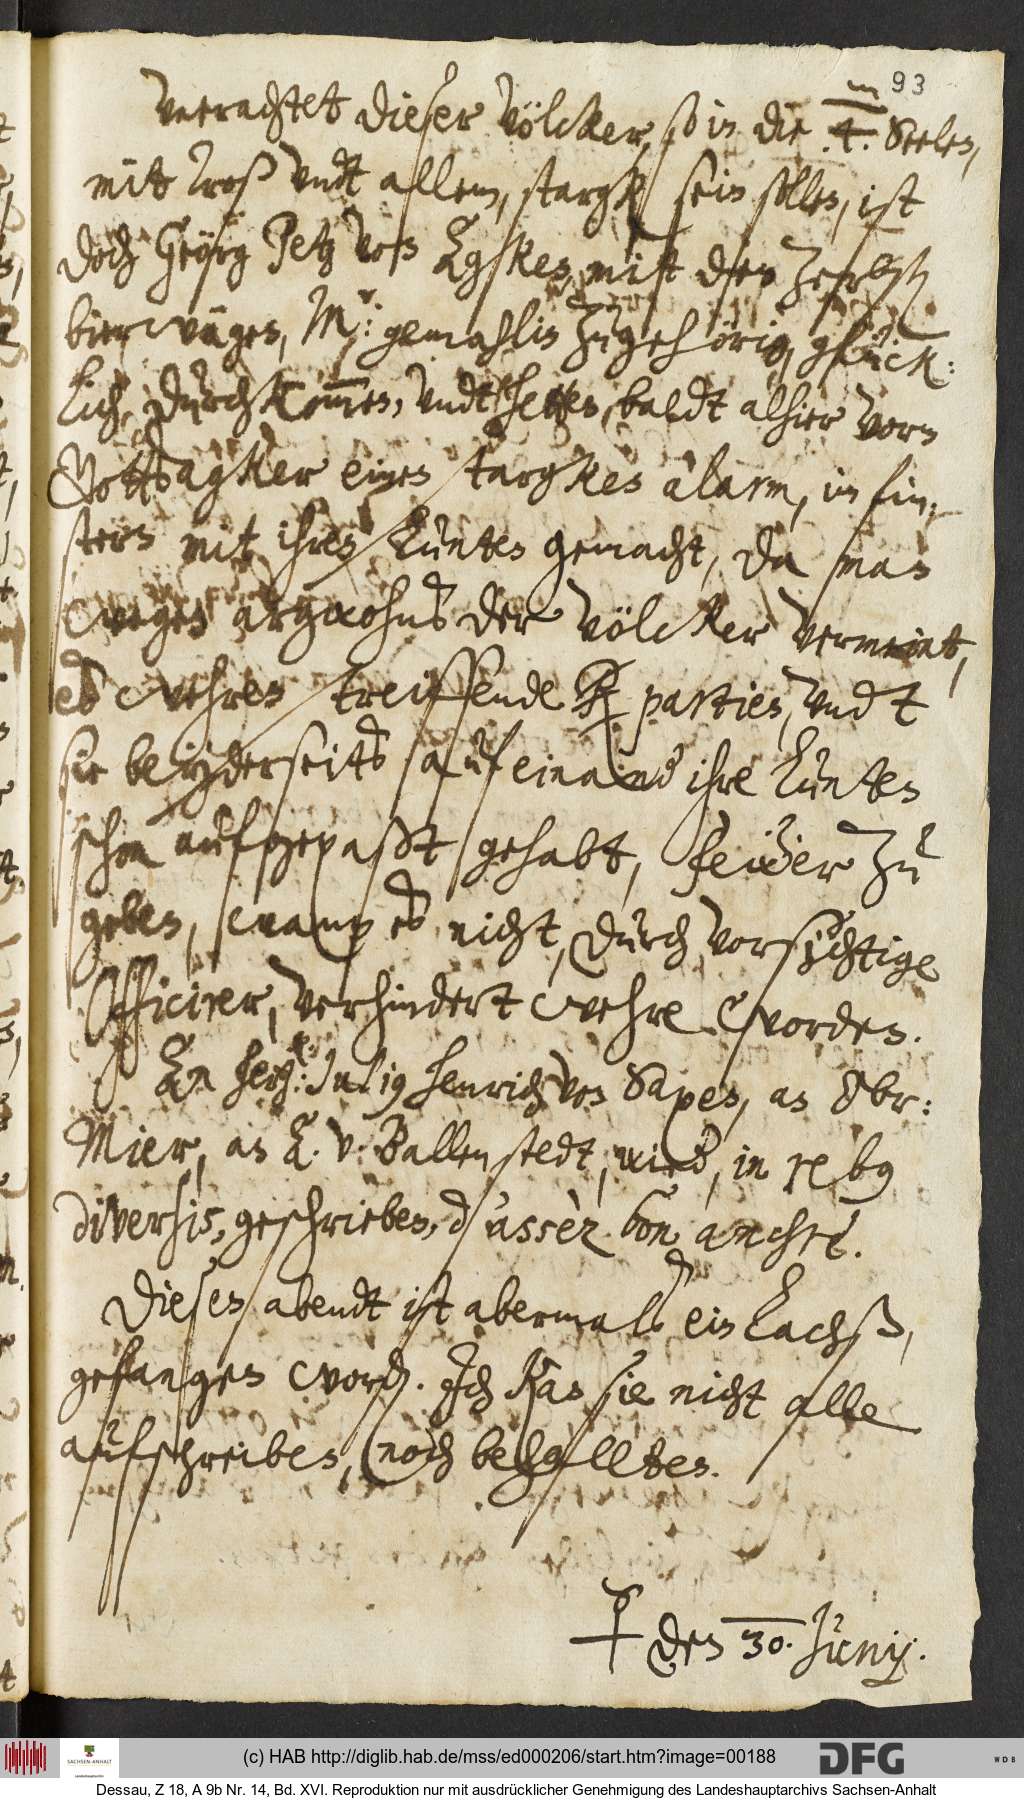 93
vnerachtet dieser Völcker, so in die .4. m Seelen,
mit Troß vndt allem, stargk sein sollen, ist
doch Geörg Petz von Egsken, mitt den Zerbst
bier wägen, Mr: gemahlin zugehörig, glück:
lich, durchkom̅en, vndt hetten, baldt alhier vorm
Gottsagker einen stargken alarm, im fin¬
stern mit ihren Lunten gemacht, da man
wegen argwohns der Völcker vermeint,
es wehren streiffende partien, vndt
sie beyderseits auf einand ihre Lunten
schon aufgepaßt gehabt, feẅer zu
geben, wann es nicht, durch vorsichtige
Officirer, verhindert wehre worden.
En Hertz: Julig henrich von Saxen, an Obr:
Mier, an L. v. Ballenstedt, wird, in rebg
diversis, geschrieben, d'assèz bon anchre.
Diesen abendt ist abermals ein Lachß,
gefangen word. Ich kan sie nicht alle
aufschreiben, noch behallten.
den 30. Junij.
(c) HAB http://diglib.hab.de/mss/ed000206/start.htm?image=00188
SACHSEN-ANHALT
DFG
WDB
Dessau, Z 18, A 9b Nr. 14, Bd. XVI. Reproduktion nur mit ausdrücklicher Genehmigung des Landeshauptarchivs Sachsen-Anhalt